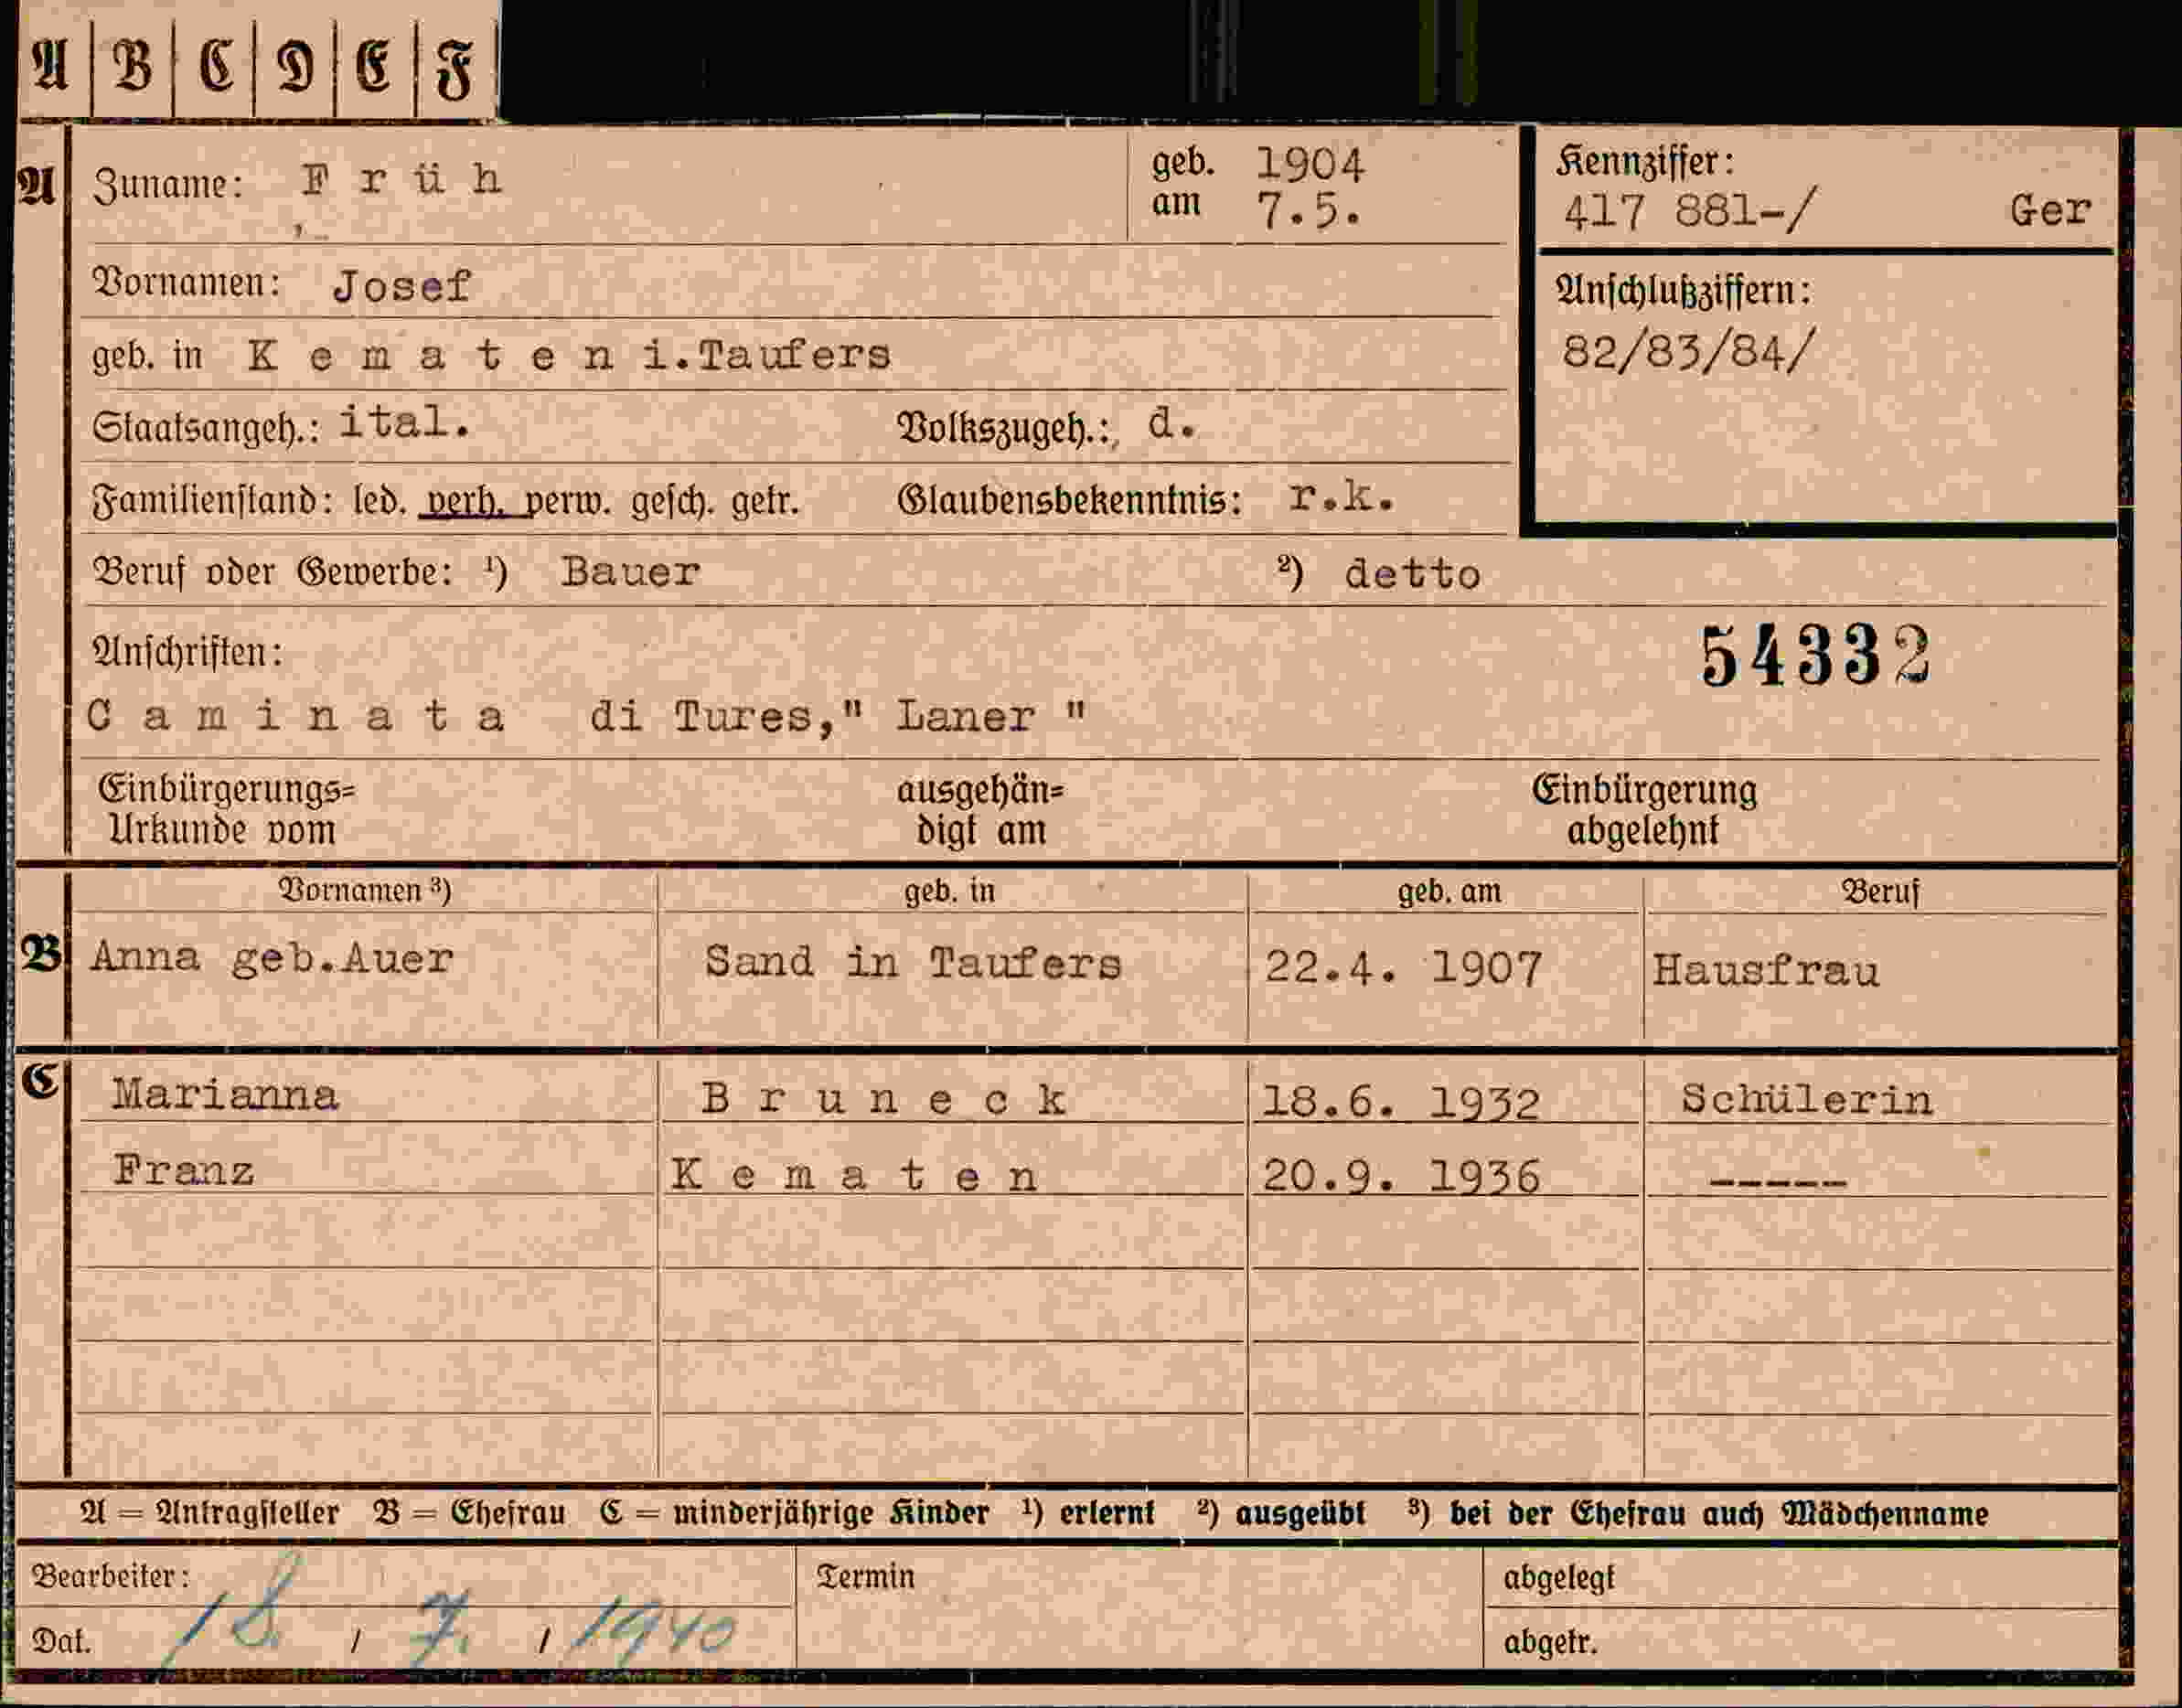 A B C D E F
A Zuname: Früh geb. am 1904 7.5.
Kennziffer:
417 881-/ Ger
Vornamen: Josef
Anschlußziffern:
82/83/84/
geb. in Kematen i.Taufers
Staatsangeh.: ital. Volkszugeh.: d.
Familienstand: led. verh. verw. gesch. getr. Glaubensbekenntnis: r.k.
Beruf oder Gewerbe: ¹) Bauer ²) detto
Anschriften: 54332
Caminata di Tures," Laner "
Einbürgerungs= ausgehän= Einbürgerung
Urkunde vom digt am abgelehnt
Vornamen ³) geb. in geb. am Beruf
B Anna geb.Auer Sand in Taufers 22.4. 1907 Hausfrau
C Marianna Bruneck 18.6. 1932 Schülerin
Franz Kematen 20.9. 1936 -----
A = Antragsteller B = Ehefrau C = minderjährige Kinder ¹) erlernt ²) ausgeübt ³) bei der Ehefrau auch Mädchenname
Bearbeiter: Termin abgelegt
Dat. 18. / 7. / 1940 abgetr.